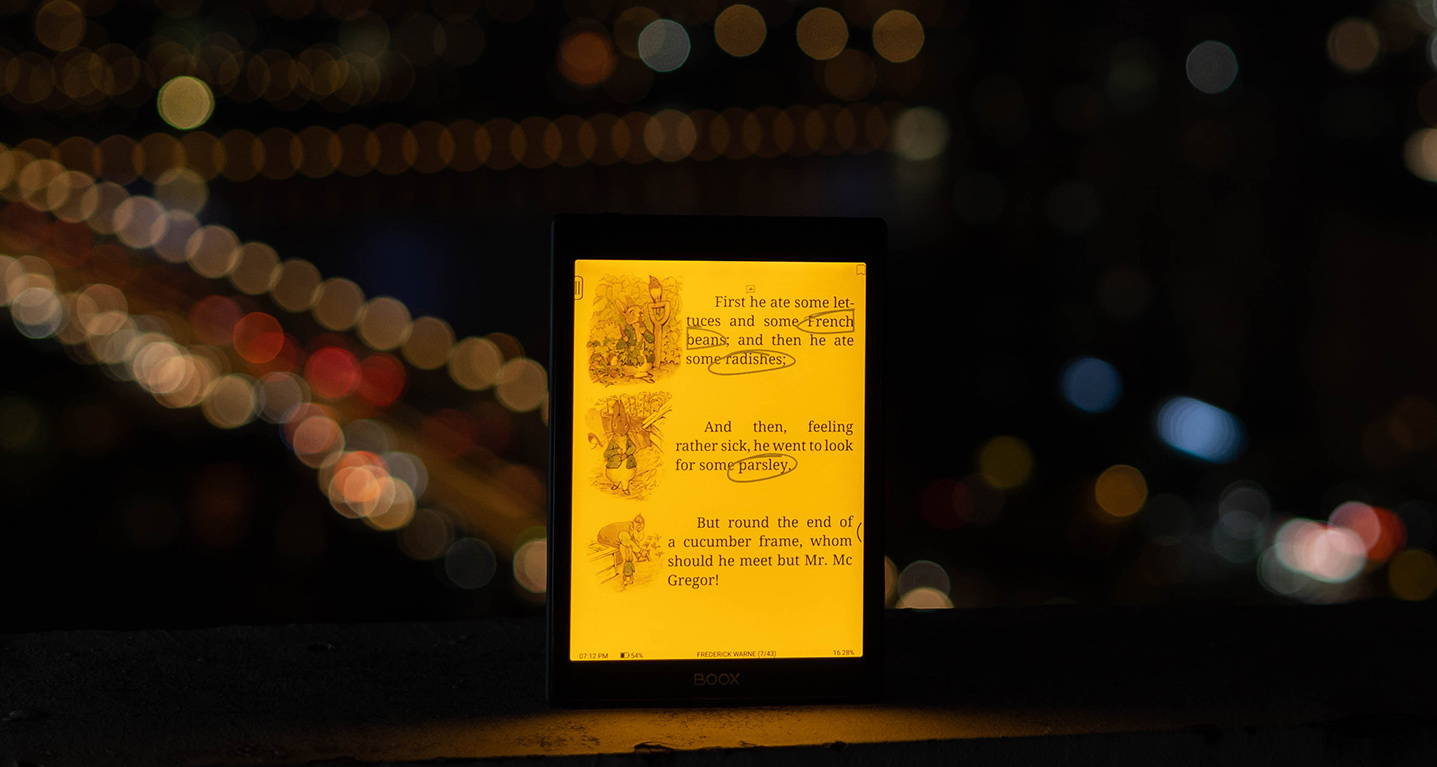 First he ate some let-
tuces and some French
beans; and then he ate
some radishes;
And then, feeling
rather sick, he went to look
for some parsley.
But round the end of
a cucumber frame, whom
should he meet but Mr. Mc
Gregor!
07:12 PM 54% FREDERICK WARNE (7/43) 16.28%
BOOX